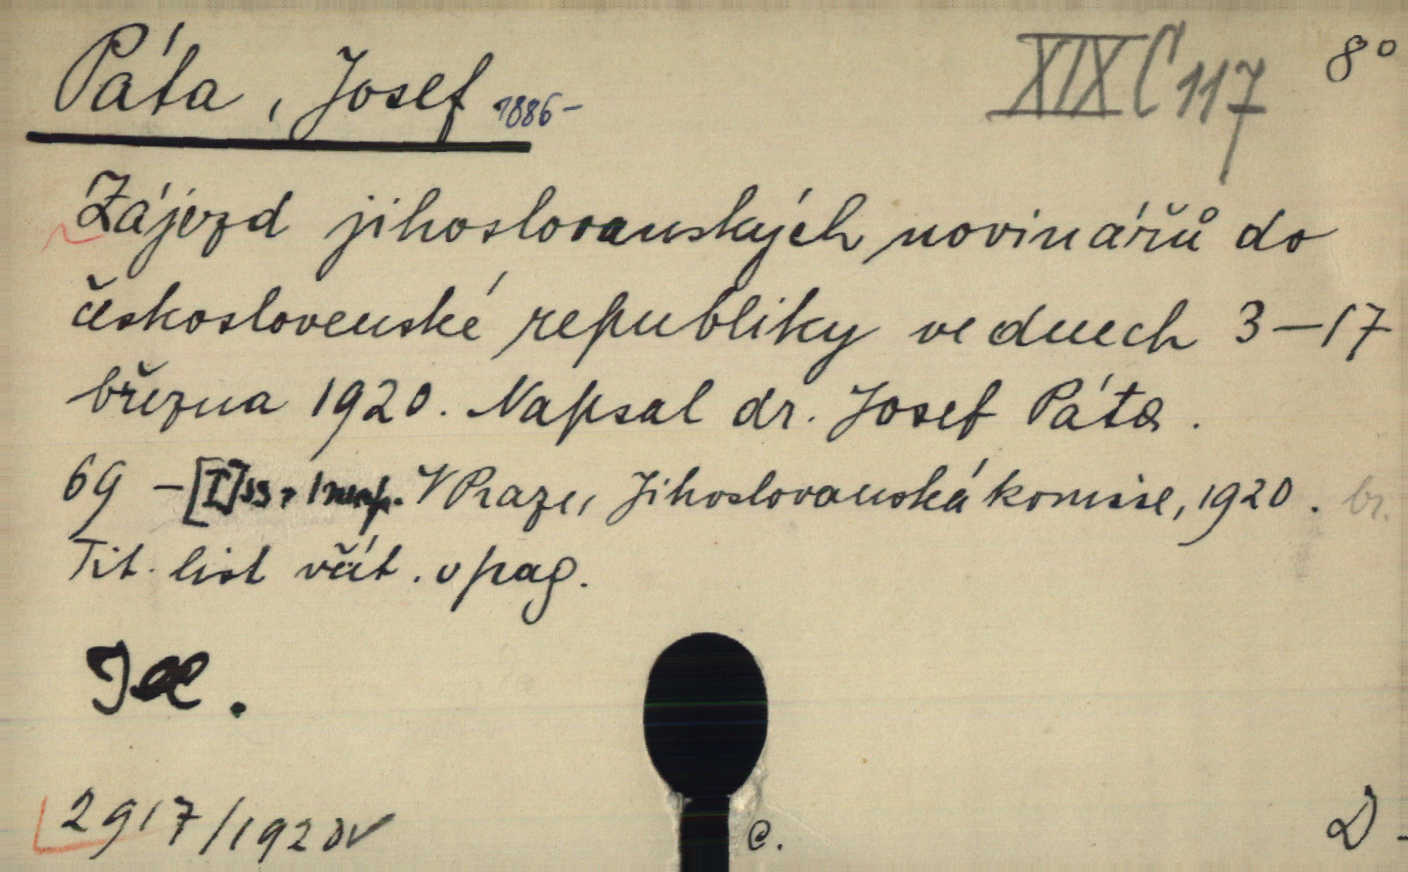 Páta, Josef 1886- XIX C 117 8°
Zájezd jihoslovanských novinářů do
československé republiky ve dnech 3–17
března 1920. Napsal dr. Josef Páta.
69 – [I] ss. V Praze, Jihoslovanská komise, 1920. br.
Tit. list včít. v pag.
2917/1920
c. D-